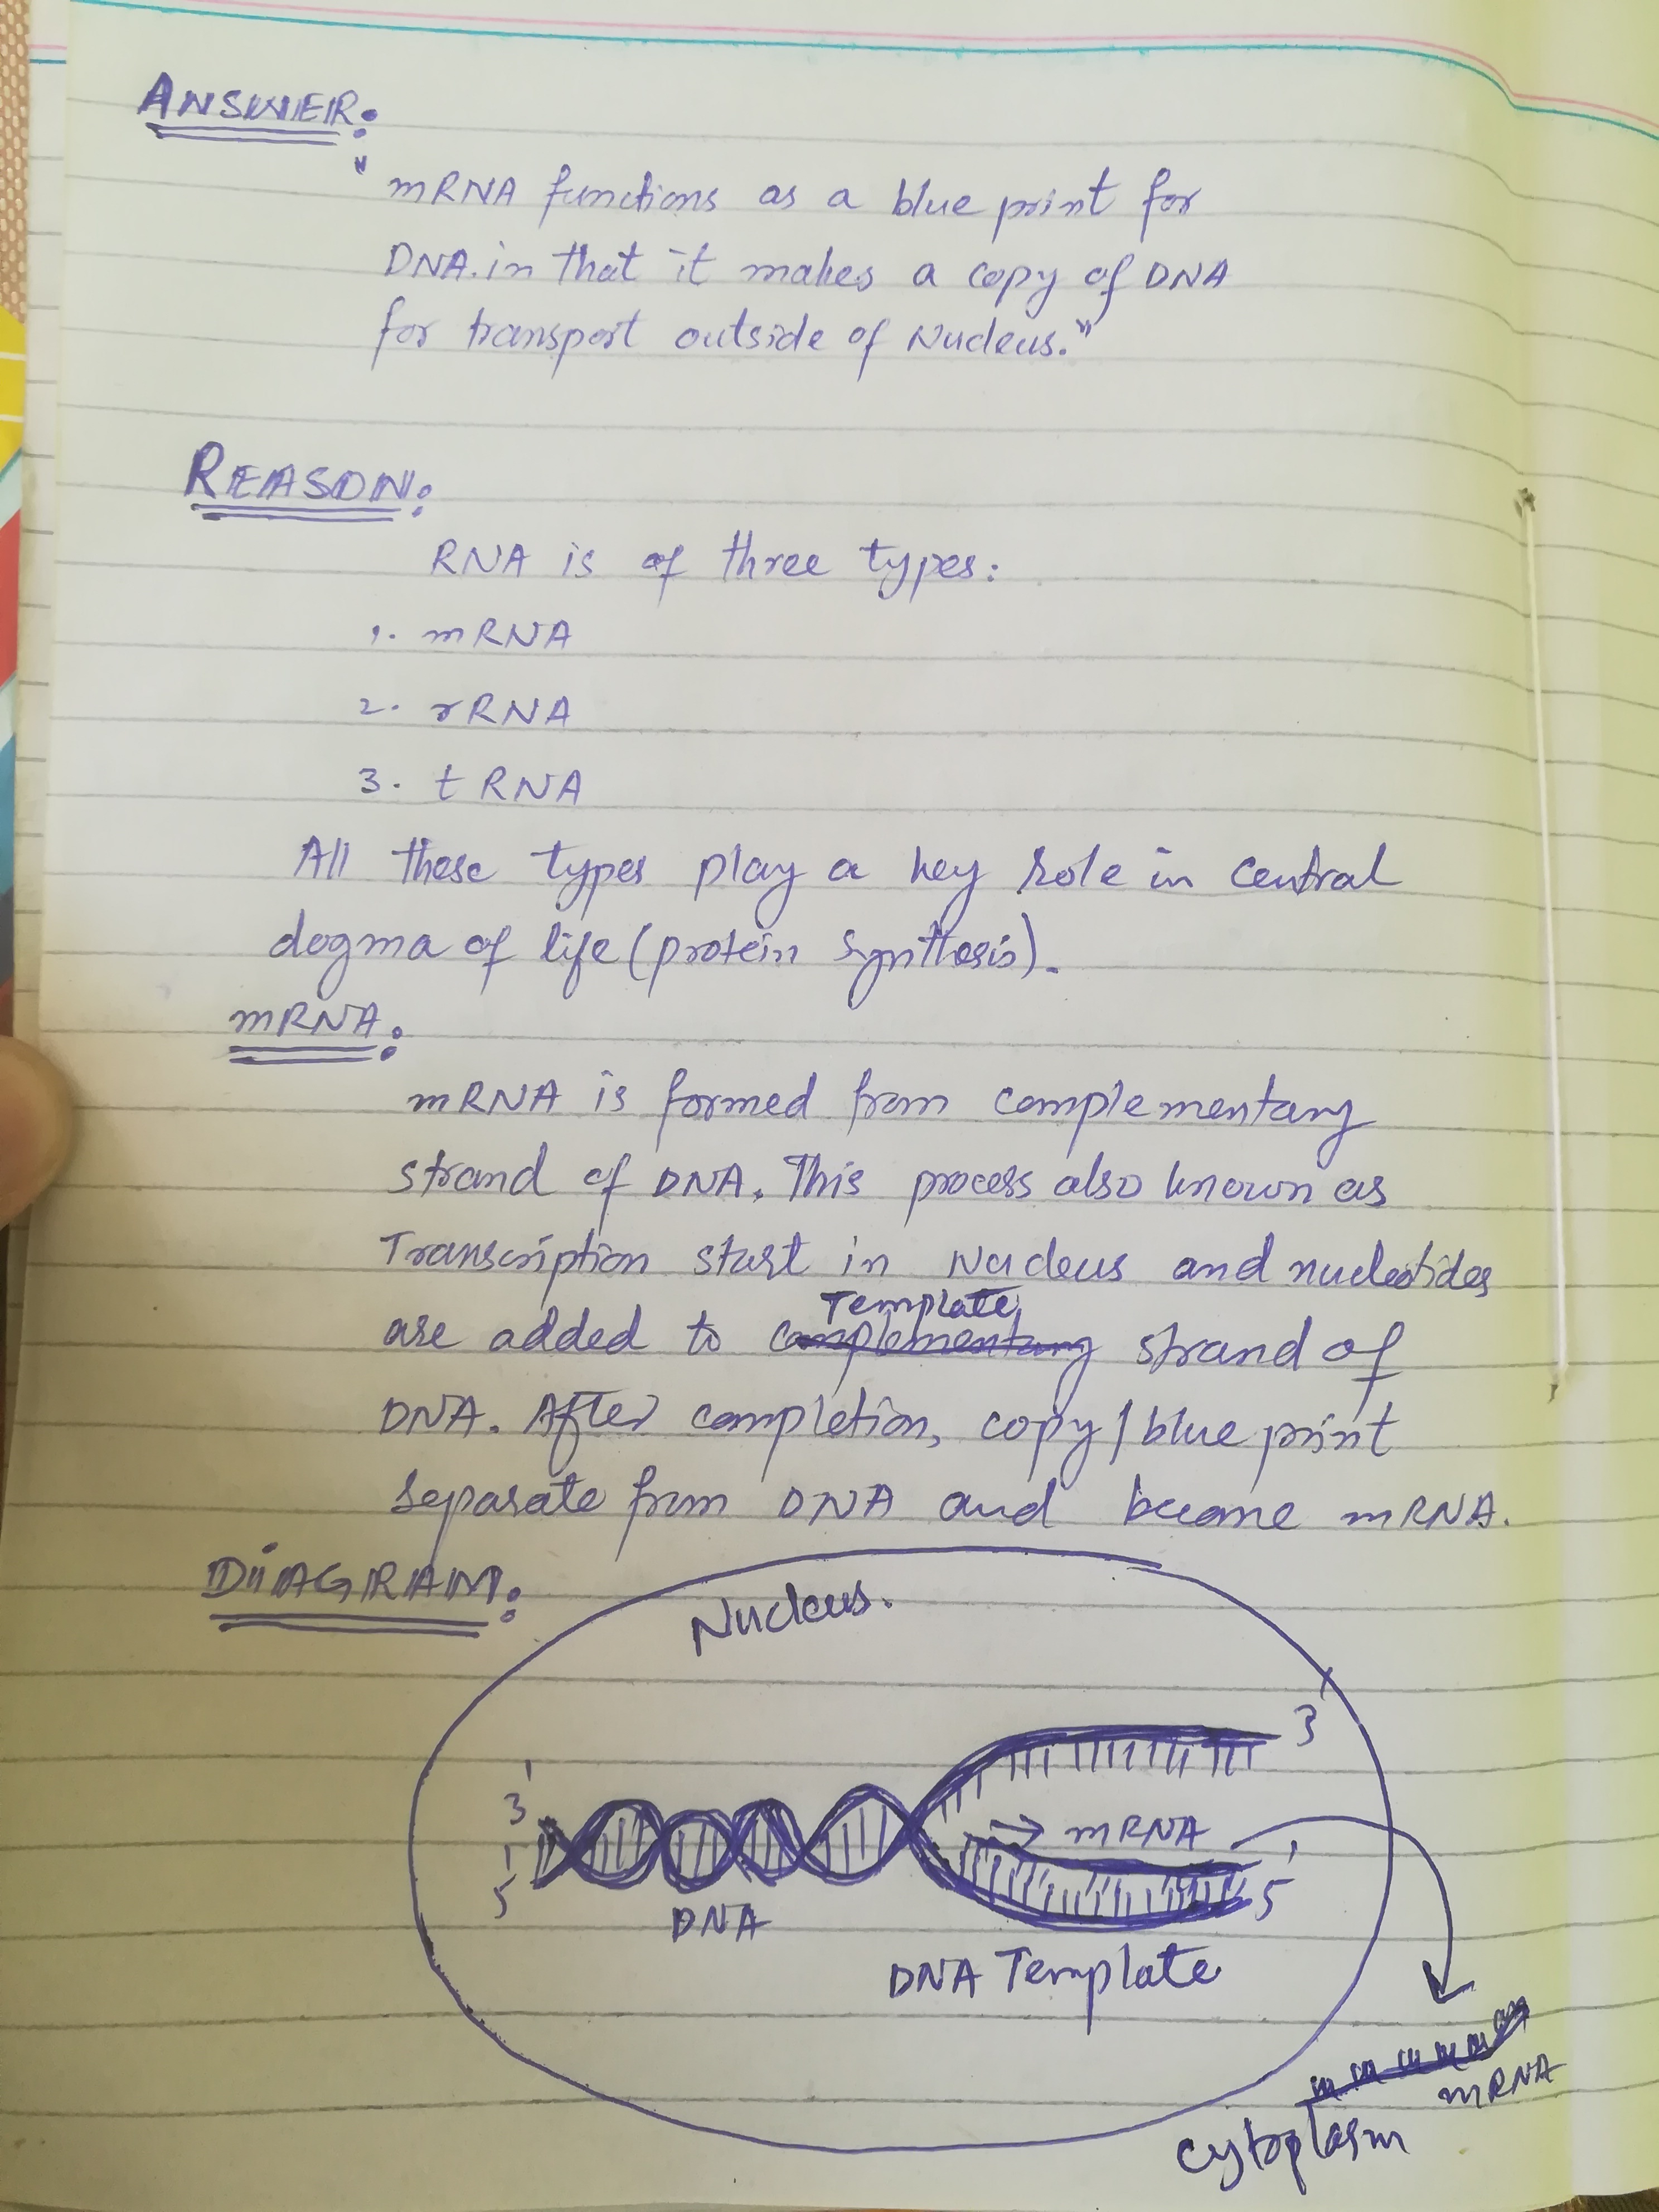 ANSWER:
"mRNA functions as a blue print for
DNA. in that it makes a copy of DNA
for transport outside of Nucleus."
REASON:
RNA is of three types:
1. mRNA
2. rRNA
3. tRNA
All these types play a key role in central
dogma of life (protein synthesis).
mRNA:
mRNA is formed from complementary
strand of DNA. This process also known as
Transcription start in Nucleus and nucleotides
Template
are added to complementary strand of
DNA. After completion, copy/blue print
separate from DNA and become mRNA.
DIAGRAM:
Nucleus.
3'
3'
mRNA
5'
5'
DNA
DNA Template
mRNA
Cytoplasm